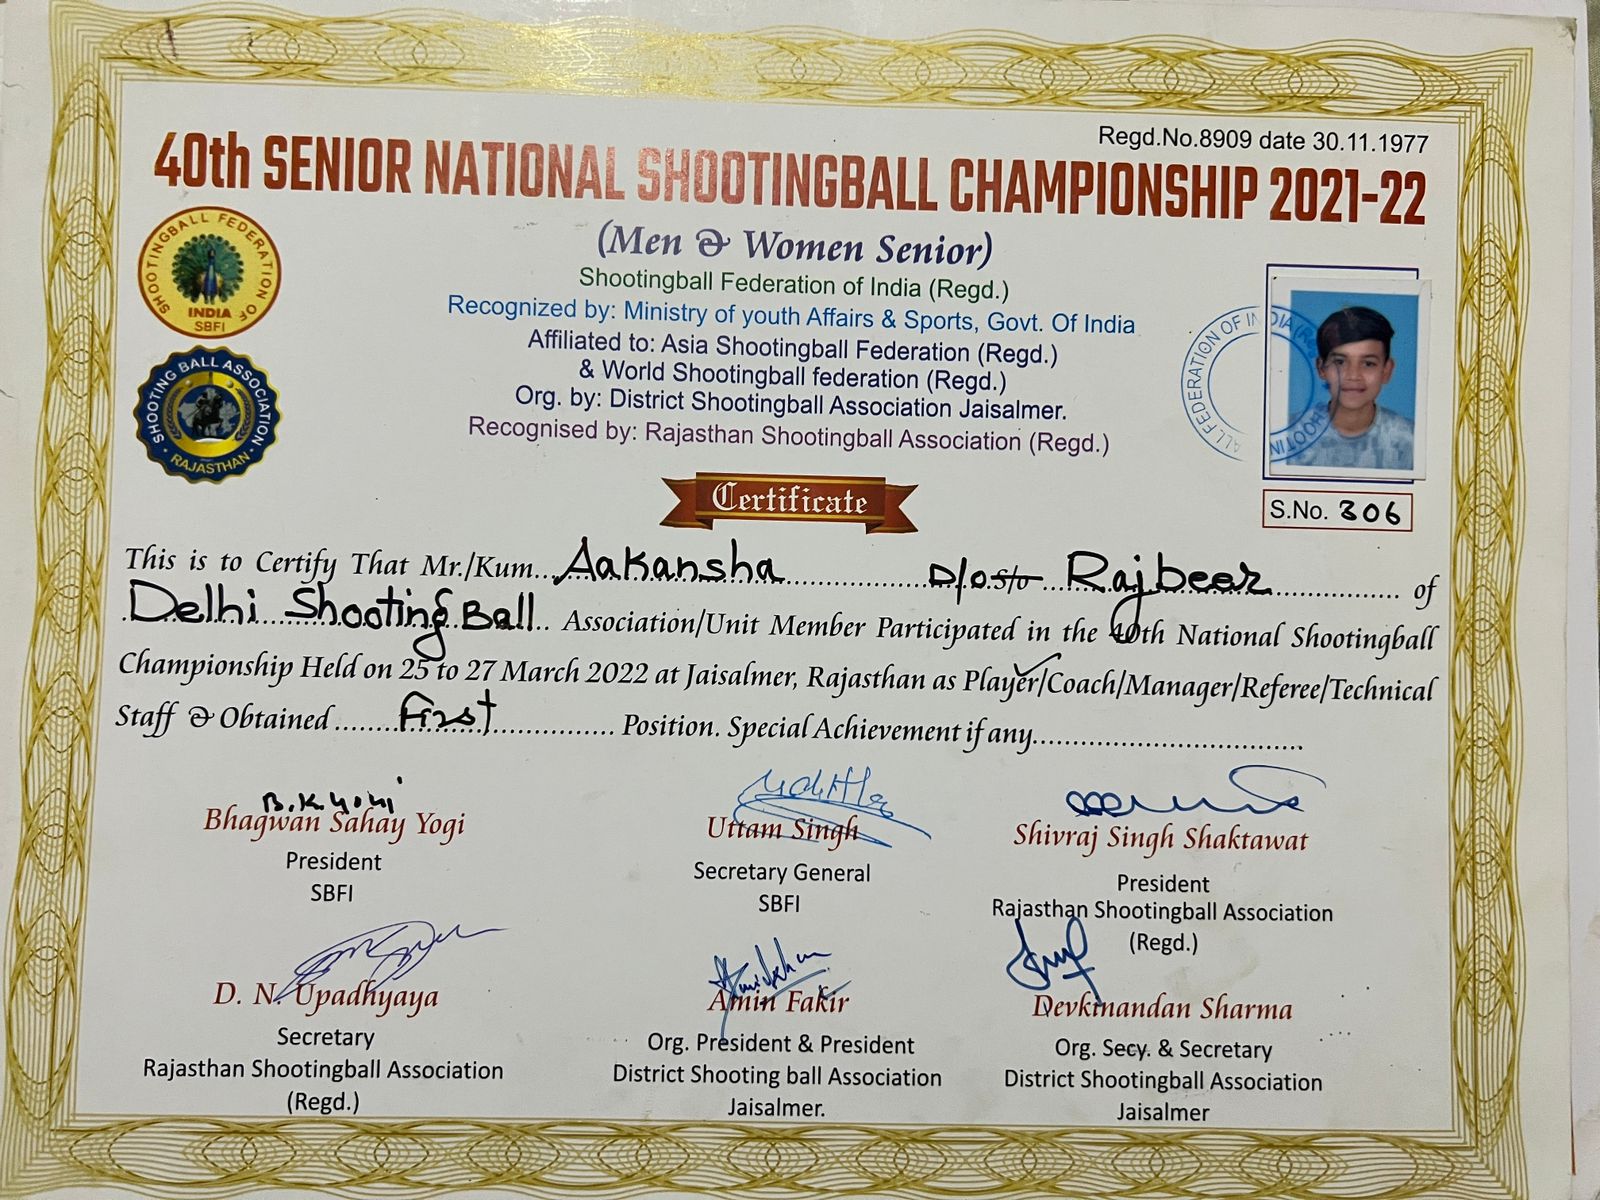 Regd.No.8909 date 30.11.1977
40th SENIOR NATIONAL SHOOTINGBALL CHAMPIONSHIP 2021-22
(Men & Women Senior)
Shootingball Federation of India (Regd.)
Recognized by: Ministry of youth Affairs & Sports, Govt. Of India
Affiliated to: Asia Shootingball Federation (Regd.)
& World Shootingball federation (Regd.)
Org. by: District Shootingball Association Jaisalmer.
Recognised by: Rajasthan Shootingball Association (Regd.)
SHOOTINGBALL FEDERATION OF
INDIA
SBFI
SHOOTING BALL ASSOCIATION
RAJASTHAN
ALL FEDERATION OF INDIA
SHOOTIN
S.No. 306
Certificate
This is to Certify That Mr./Kum...Aakansha............... D/o S/o ...Rajbeer.................. of
Delhi Shooting Ball.. Association/Unit Member Participated in the 40th National Shootingball
Championship Held on 25 to 27 March 2022 at Jaisalmer, Rajasthan as Player/Coach/Manager/Referee/Technical
Staff & Obtained ........First................. Position. Special Achievement if any....................................
B.K.yogi
Bhagwan Sahay Yogi
President
SBFI
Uttam Singh
Secretary General
SBFI
Shivraj Singh Shaktawat
President
Rajasthan Shootingball Association
(Regd.)
D. N. Upadhyaya
Secretary
Rajasthan Shootingball Association
(Regd.)
Amin Fakir
Org. President & President
District Shooting ball Association
Jaisalmer.
Devkinandan Sharma
Org. Secy. & Secretary
District Shootingball Association
Jaisalmer